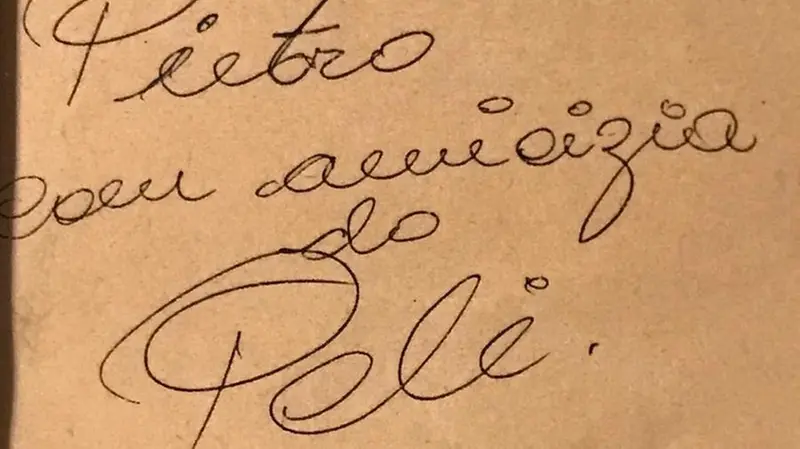 Pietro
com amicizia
do
Pelé.